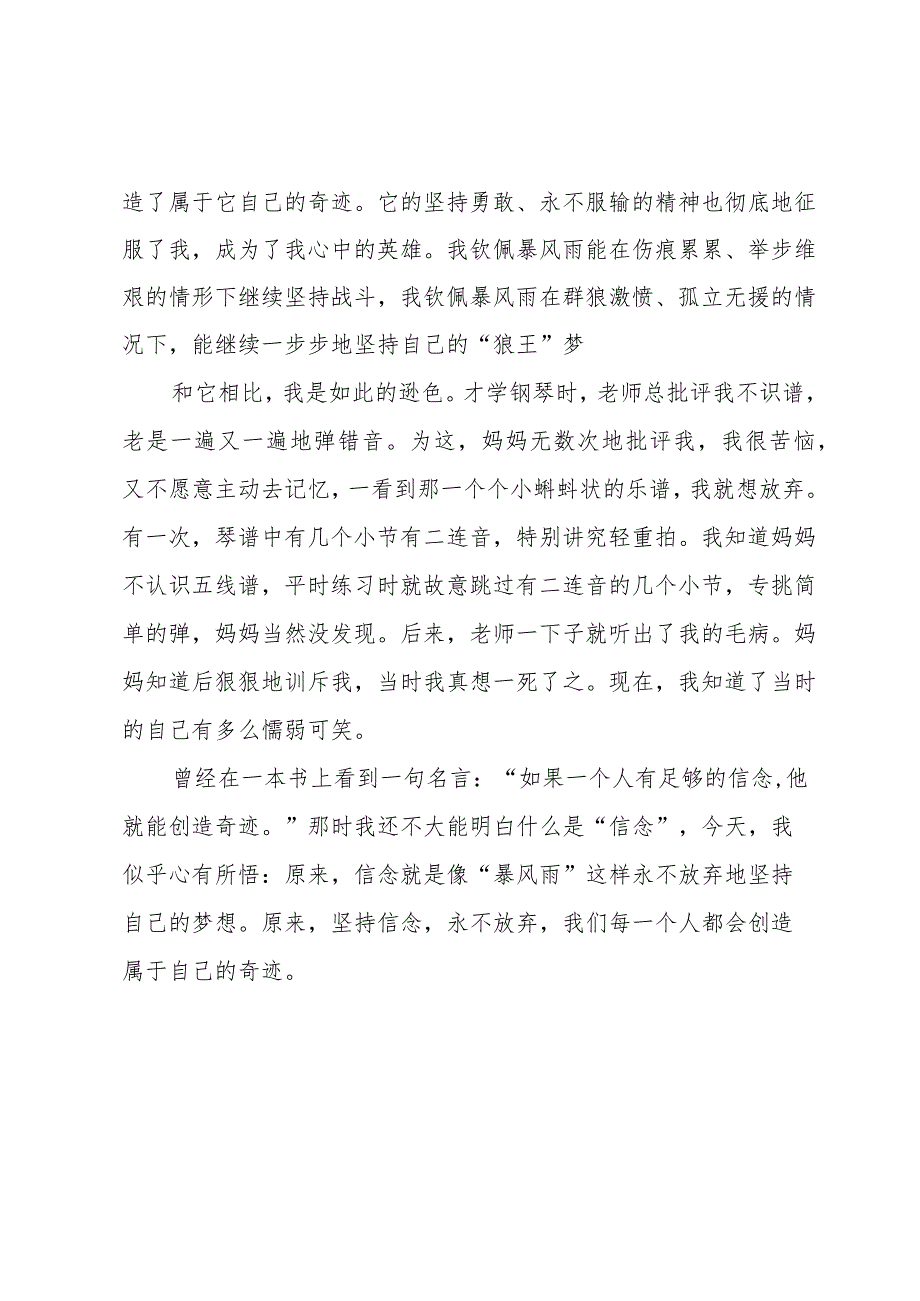 造了属于它自己的奇迹。它的坚持勇敢、永不服输的精神也彻底地征
服了我，成为了我心中的英雄。我钦佩暴风雨能在伤痕累累、举步维
艰的情形下继续坚持战斗，我钦佩暴风雨在群狼激愤、孤立无援的情
况下，能继续一步步地坚持自己的“狼王”梦
和它相比，我是如此的逊色。才学钢琴时，老师总批评我不识谱，
老是一遍又一遍地弹错音。为这，妈妈无数次地批评我，我很苦恼，
又不愿意主动去记忆，一看到那一个个小蝌蚪状的乐谱，我就想放弃。
有一次，琴谱中有几个小节有二连音，特别讲究轻重拍。我知道妈妈
不认识五线谱，平时练习时就故意跳过有二连音的几个小节，专挑简
单的弹，妈妈当然没发现。后来，老师一下子就听出了我的毛病。妈
妈知道后狠狠地训斥我，当时我真想一死了之。现在，我知道了当时
的自己有多么懦弱可笑。
曾经在一本书上看到一句名言：“如果一个人有足够的信念,他
就能创造奇迹。”那时我还不大能明白什么是“信念”，今天，我
似乎心有所悟：原来，信念就是像“暴风雨”这样永不放弃地坚持
自己的梦想。原来，坚持信念，永不放弃，我们每一个人都会创造
属于自己的奇迹。